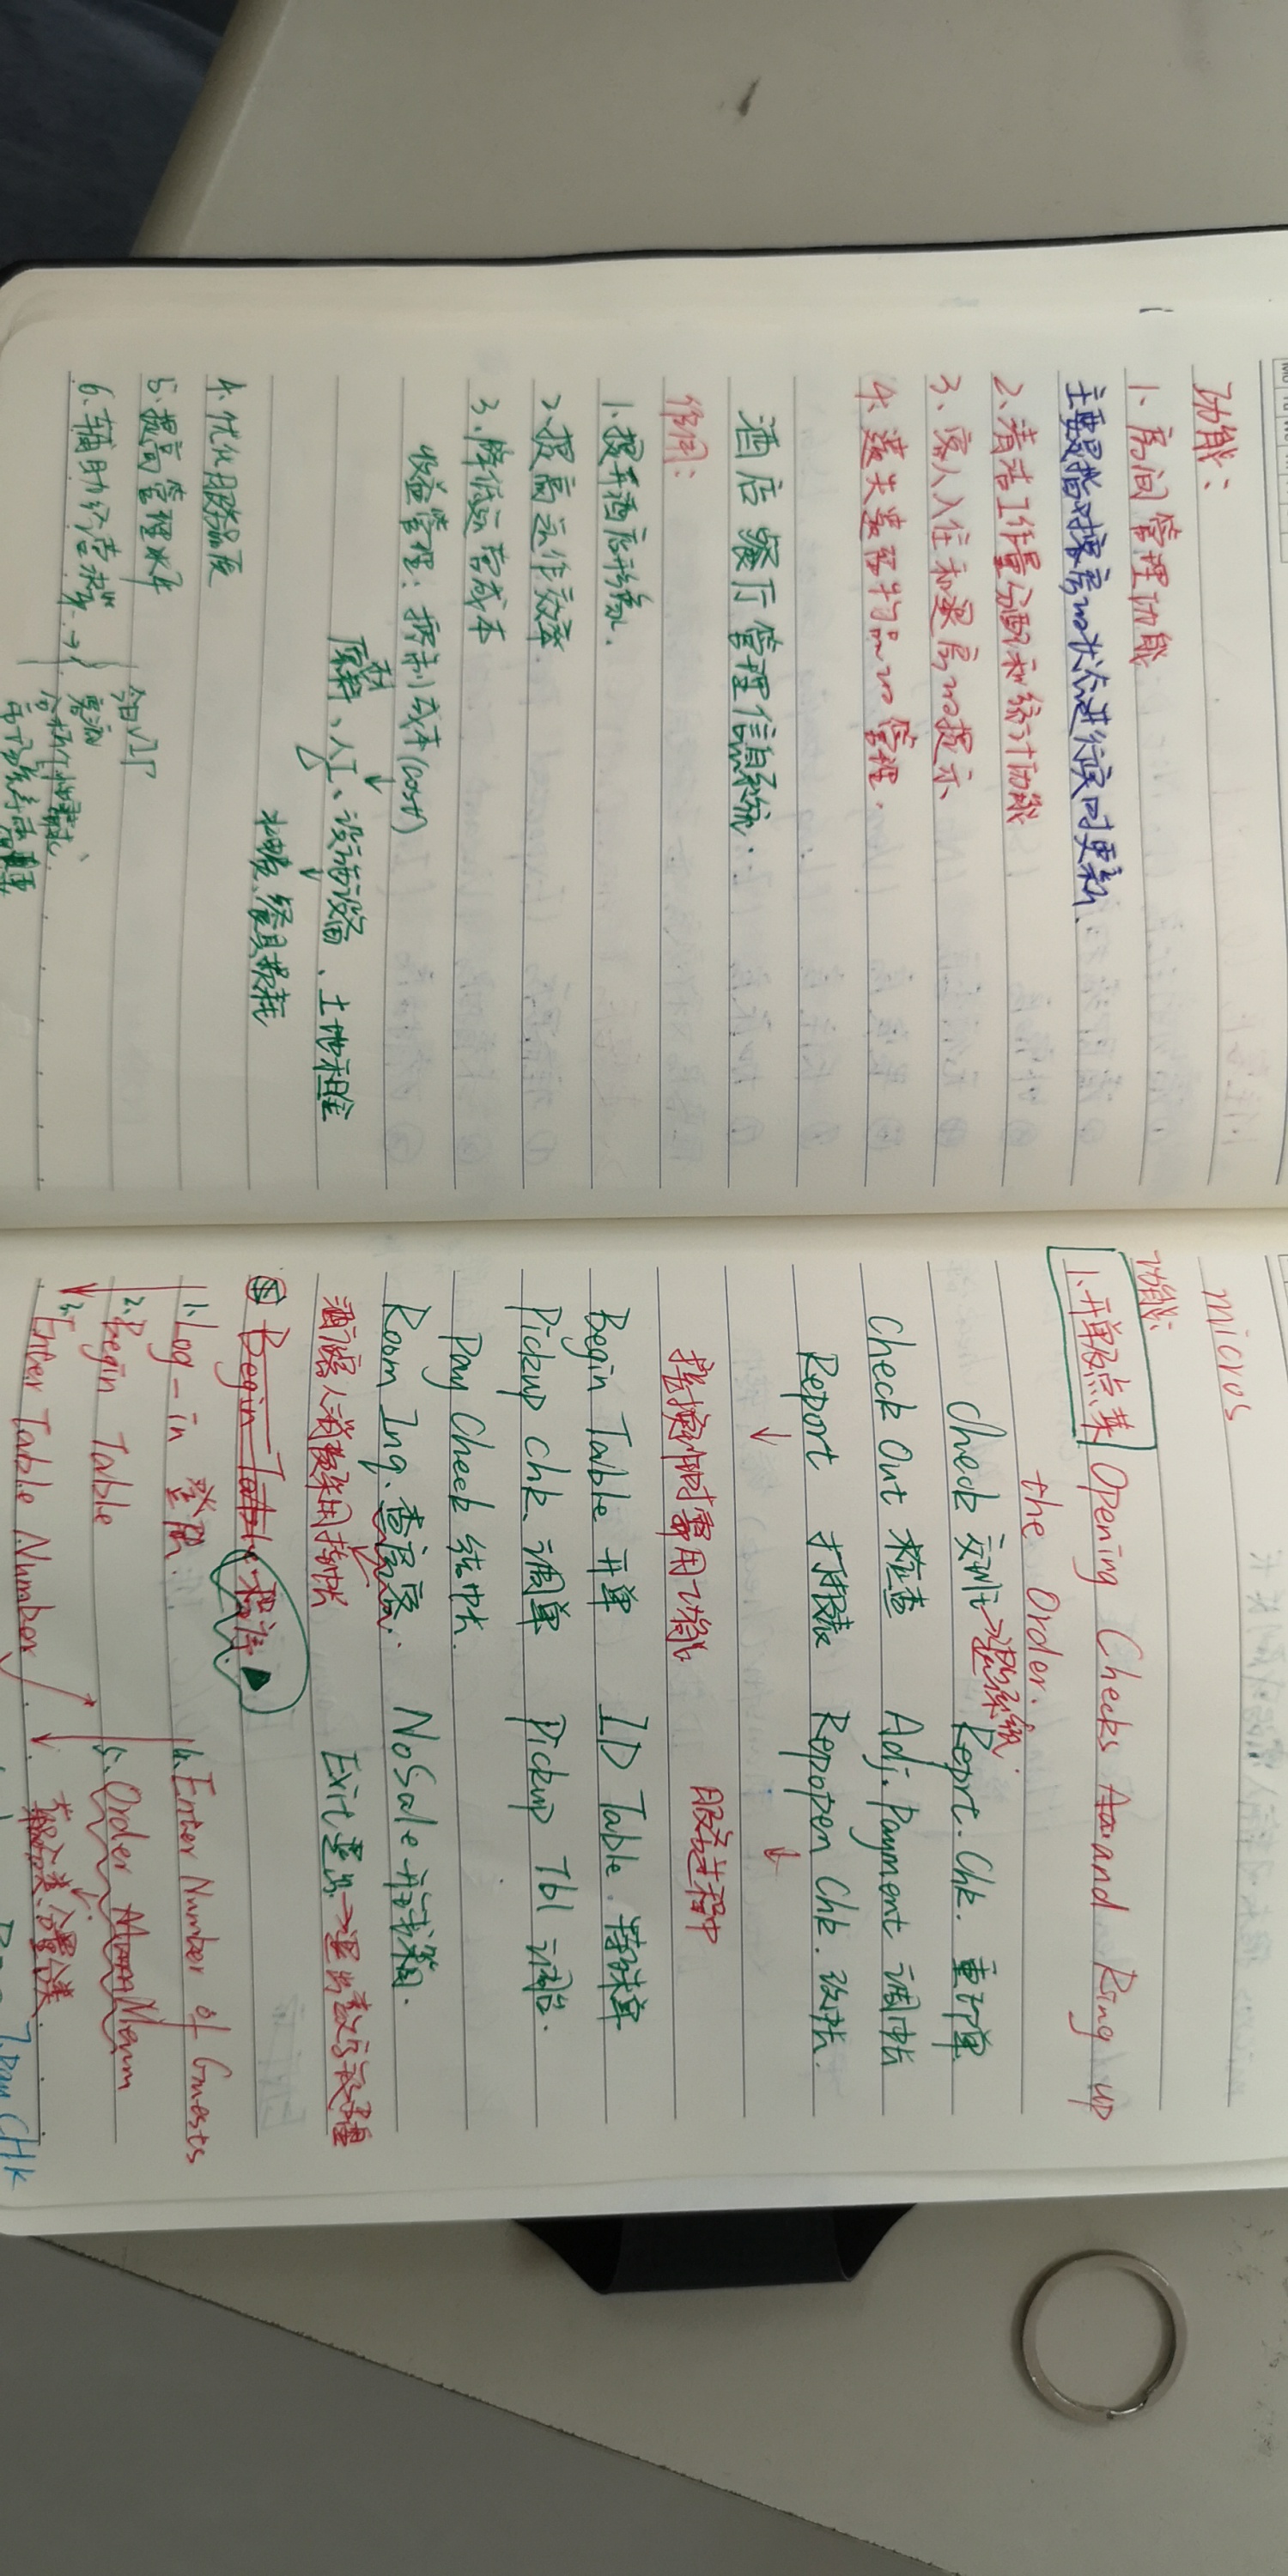 功能:
1.房间管理功能
主要是指对客房的状态进行实时更新.
2.清洁工作量分配和统计功能
3.客人入住和退房的提示
4.遗失遗留物品的管理.
酒店餐厅管理信息系统.
作用:
1.提升酒店形象.
2.提高运作效率
3.降低运营成本
收益管理:控制成本(cost)
原材料、人工、设施设备、土地租金
水电、餐具损耗
4.优化服务品质
5.提高管理水平
6.辅助经营决策.→
micros
功能:
1.开单及点菜 Opening Checks and Ring up
the Order.
Check 交班→退出系统. Reprt.Chk. 重印单
Check Out 检查 Adj.Payment 调帐
Report 打报表 Repopen Chk. 改帐.
↓ ↓
挂换帐时需用功能 服务进程中
Begin Table 开单 ID Table.特殊单
Pickup Chk.调单 Pickup Tbl 调台.
Pay Check 结帐.
Room Inq.查房客. NoSale 开钱箱.
酒店客人消费采用挂帐 Exit 退出→退出
Begin Table
1.Log-in 登陆. 4.Enter Number of Guests
2.Begin Table 5.Order Menu
3.Enter Table Number
7.Pay CHK